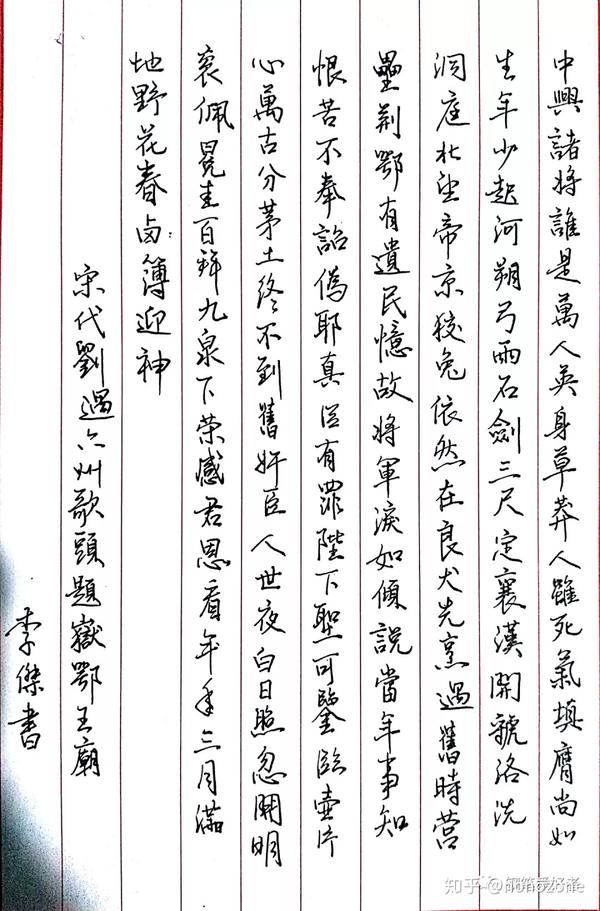 中興諸將誰是萬人英身草莽人雖死氣填膺尚如
生年少起河朔弓兩石劍三尺定襄漢開虢洛洗
洞庭北望帝京狡兔依然在良犬先烹過舊時營
壘荆鄂有遺民憶故將軍淚如傾說當年事知
恨苦不奉詔僞耶真臣有罪陛下聖可鑒臨壹片
心萬古分茅土終不到舊奸臣人世夜白日照忽開明
衮佩冕圭百拜九泉下荣感君恩看年年三月滿
地野花春鹵簿迎神
宋代劉過六州歌頭題嶽鄂王廟
李傑書
知乎 @nonozone